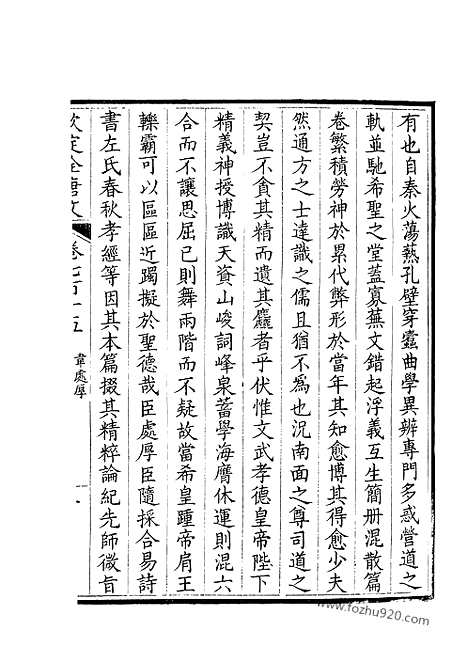 有也自秦火蕩爇孔壁穿蠹曲學異辨專門多惑營道之
軌並馳希聖之堂蓋寡蕪文錯起浮義互生簡册混散篇
卷繁積勞神於累代弊形於當年其知愈博其得愈少夫
然通方之士達識之儒且猶不為也況南面之尊司道之
契豈不貪其精而遺其麤者乎伏惟文武孝德皇帝陛下
精義神授博識天資山峻詞峰泉蓄學海膺休運則混六
合而不讓思屈已則舞兩階而不疑故當希皇踵帝肩王
轢霸可以區區近躅擬於聖德哉臣處厚臣隨採合易詩
書左氏春秋孝經等因其本篇掇其精粹論紀先師微旨
欽定全唐文
卷七百十五
韋處厚
www.fozhu920.com